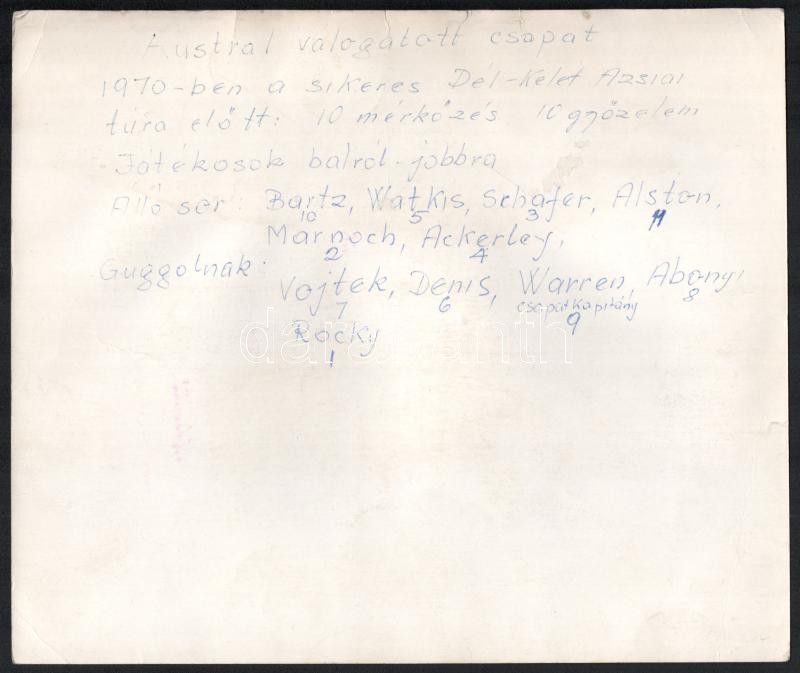 Austral valogatott csapat
1970-ben a sikeres Dél-Kelet Azsiai
túra előtt: 10 mérkőzés 10 győzelem
- Játékosok balról-jobbra
Álló sor: Bartz, Watkis, Schafer, Alston,
10 5 3 11
Marnoch, Ackerley,
2 4
Guggolnak:
Vojtek, Denis, Warren, Abonyi
7 6 csapatkapitány 8
9
Rocky
1